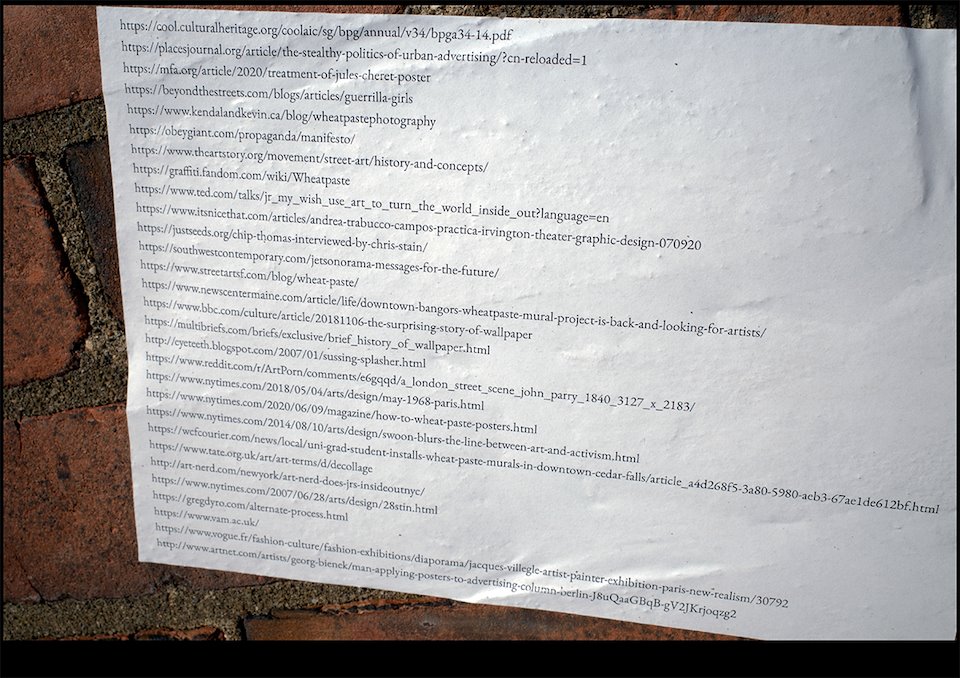 https://cool.culturalheritage.org/coolaic/sg/bpg/annual/v34/bpga34-14.pdf
https://placesjournal.org/article/the-stealthy-politics-of-urban-advertising/?cn-reloaded=1
https://mfa.org/article/2020/treatment-of-jules-cheret-poster
https://beyondthestreets.com/blogs/articles/guerrilla-girls
https://www.kendalandkevin.ca/blog/wheatpastephotography
https://obeygiant.com/propaganda/manifesto/
https://www.theartstory.org/movement/street-art/history-and-concepts/
https://graffiti.fandom.com/wiki/Wheatpaste
https://www.ted.com/talks/jr_my_wish_use_art_to_turn_the_world_inside_out?language=en
https://www.itsnicethat.com/articles/andrea-trabucco-campos-practica-irvington-theater-graphic-design-070920
https://justseeds.org/chip-thomas-interviewed-by-chris-stain/
https://southwestcontemporary.com/jetsonorama-messages-for-the-future/
https://www.streetartsf.com/blog/wheat-paste/
https://www.newscentermaine.com/article/life/downtown-bangors-wheatpaste-mural-project-is-back-and-looking-for-artists/
https://www.bbc.com/culture/article/20181106-the-surprising-story-of-wallpaper
https://multibriefs.com/briefs/exclusive/brief_history_of_wallpaper.html
http://eyeteeth.blogspot.com/2007/01/sussing-splasher.html
https://www.reddit.com/r/ArtPorn/comments/e6gqqd/a_london_street_scene_john_parry_1840_3127_x_2183/
https://www.nytimes.com/2018/05/04/arts/design/may-1968-paris.html
https://www.nytimes.com/2020/06/09/magazine/how-to-wheat-paste-posters.html
https://www.nytimes.com/2014/08/10/arts/design/swoon-blurs-the-line-between-art-and-activism.html
https://wcfcourier.com/news/local/uni-grad-student-installs-wheat-paste-murals-in-downtown-cedar-falls/article_a4d268f5-3a80-5980-aeb3-67ae1de612bf.html
https://www.tate.org.uk/art/art-terms/d/decollage
http://art-nerd.com/newyork/art-nerd-does-jrs-insideoutnyc/
https://www.nytimes.com/2007/06/28/arts/design/28stin.html
https://gregdyro.com/alternate-process.html
https://www.vam.ac.uk/
https://www.vogue.fr/fashion-culture/fashion-exhibitions/diaporama/jacques-villegle-artist-painter-exhibition-paris-new-realism/30792
http://www.artnet.com/artists/georg-bienek/man-applying-posters-to-advertising-column-berlin-J8uQaaGBqB-gV2JKrjoqzg2